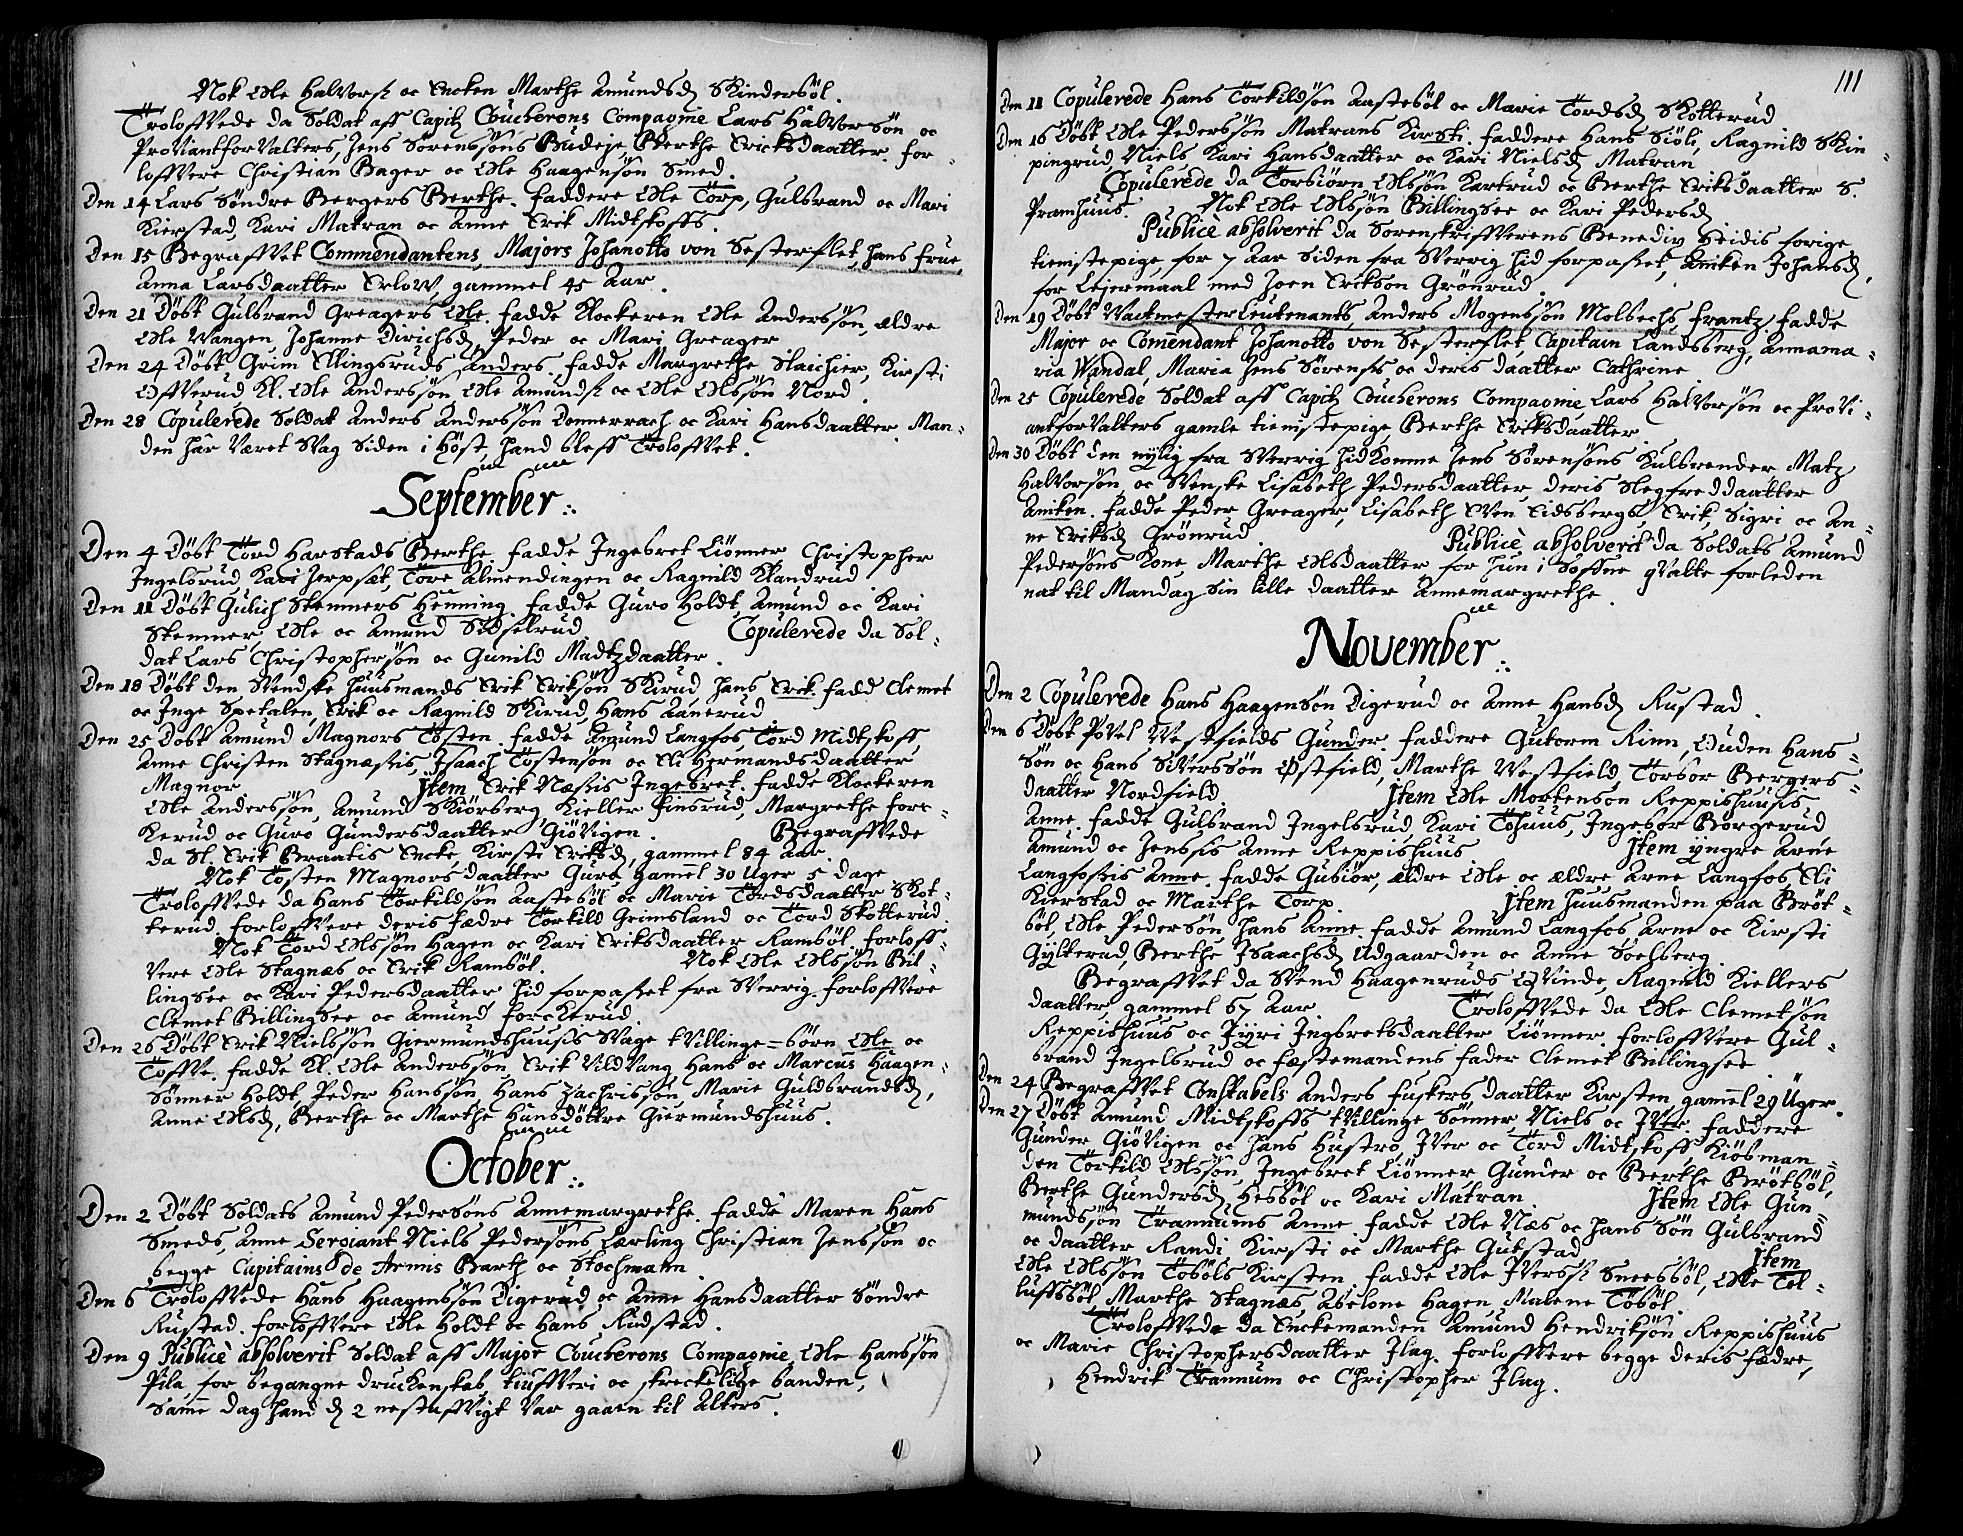 Nok Ole Halvorss oc Encken Marthe Amundsd Skindersöl.
Trolofvede da Soldat aff Capit Coucherons Compagnie Lars Halvorsön oc
Proviantforvalters, Jens Sörensöns Budeje Berthe Ericksdaatter. for-
lofvere Christian Bager oc Ole Haagensön Smed.
Den 14 Lars Söndre Bergers Berthe. faddere Ole Torp, Gulbrand oc Mari
Kierstad, Kari Matran oc Anne Erik Midtskofs.
Den 15 Begrafvet Commendantens, Majors Johanotto von Sesterflet, hans frue,
Anna Larsdaatter Erlow, gammel 45 Aar.
Den 21 Döbt Gulbrand Greagers Ole. fadde Klockeren Ole Anderssön, ældre
Ole Vangen, Johanne Dirichsd, Peder oc Mari Greager
Den 24 Döbt, Grim Ellingsruds Anders. fadde Margrethe Slaichier, Kirsti
Ofverud, Kl. Ole Anderssön Ole Amundss oc Ole Olssön Nord.
Den 28 Copulerede Soldat Anders Anderssön Donnerrach oc Kari Hansdaatter. Man-
den har Været Svag Siden i Höst, hand blef Trolofvet.
September.
Den 4 Döbt Tord Harstads Berthe. fadde Ingebret Liönner Christopher
Ingelsrud, Kari Jerpset, Tore Almendingen oc Ragnild Klandrud
Den 11 Döbt Gulich Stemmers Henning. fadde Guro Holdt, Amund oc Kari
Stemmer, Ole oc Amund Skiöselrud. Copulerede da Sol-
dat Lars Christophersön oc Gunild Madtzdaatter.
Den 18 Döbt den Svendske Huusmands Erik Eriksön Skirud, hans Erik. fadd Clemet
oc Inge Spetalen, Erik oc Ragnild Skirud, Hans Aanerud
Den 25 Döbt Amund Magnors Tosten. fadde Amund Langfos, Tord Midtskoff,
Anne Christen Stagnæssis, Isaach Tostensön oc Eli Hermandsdaatter
Magnor. Item Erik Næssis Ingebret. fadde Klockeren
Ole Anderssön, Amund Skiörberg, Kieller Finsrud, Margrethe forc-
kerud oc Guro Gundersdaatter Giövigen. Begrafvede
da Sl. Erik Braatis Encke, Kirsti Eriksd, gammel 84 Aar.
Nok Tosten Magnors daatter Guro gamel 30 Uger 5 dage
Trolofvede da Hans Torkildsön Aastebøl oc Marie Tordsdaatter Skot-
terud. forlofvere deris fædre Torkild Grimsland oc Tord Skotterud.
Nok Tord Olssön Hagen oc Kari Eriksdaatter Ramsöl. forloff-
vere Ole Stagnæs oc Erik Ramsöl. Nok Ole Olssön Bil-
lingsee oc Kari Pedersdaatter, hid forpasset fra Sverrig. forlofvere
Clemet Billingsee oc Amund forckerud
Den 26 Döbt Erik Nielssön Giermundshuusis Svage tvillinge-börn Ole oc
Tofve. fadde Kl. Ole Anderssön, Erik Vildvang, Hans oc Marcus Haagen-
Sønner Holdt, Peder Hanssön, Hans Zachrissön, Marie Guldbrandsd,
Anne Olsd, Berthe oc Marthe Hansdöttre Giermundshuus.
October.
Den 2 Döbt Soldats Amund Pedersöns Annemargrethe. fadde Maren Hans
Smeds, Anne Sergiant Niels Pedersöns Lærling Christian Jenssön oc
begge Capitains de Armis Barth oc Stochmann.
Den 6 Trolofvede Hans Haagenssön Digerud oc Anne Hansdaatter Söndre
Rustad. forlofvere Ole Holdt oc Hans Rudstad.
Den 9 Publicè absolverit Soldat aff Major Coucherons Compagnie, Ole Hanssön
Pila, for begangne druckenskab, tiufveri oc skreckelige banden,
Samme dag hand d 2 nestafvigt var gaaen til Alters.
111
Den 11 Copulerede Hans Torkildsön Aastebøl oc Marie Tordsd Skotterud
Den 16 Döbt Ole Pederssön Matrans Kirsti. faddere Hans Siöli, Ragnild Skin-
pingrud, Niels Kari Hansdaatter oc Kari Nielsd Matran
Copulerede da Torbiörn Olssön Kartrud oc Berthe Eriksdaatter S.
Pramhuus. Nok Ole Olssön Billingsee oc Kari Pedersd
Publicè absolverit da Sorenskrifverens Benedix Heidis forige
tienstepige, for 7 Aar siden fra Sverrig hid forpasset, Aniken Johansd,
for Lejermaal med Joen Erikson Grönrud.
Den 19 Döbt Vactmester Leutenants, Anders Mogensön Molbechs, Frantz. fadde
Major oc Comendant Johanotto von Sesterflet, Capitain Landsberg, Annama-
ria Wandal, Maria Jens Sörenses oc deris daatter Cathrine
Den 25 Copulerede Soldat aff Capit Coucherons Compagnie, Lars Halvorsön oc Provi-
antforvalters gamle tienstepige, Berthe Eriksdaatter
Den 30 Döbt den nylig fra Sverrig hidkomne Jens Sörensöns Kulbrender Matz
Halvorsön, oc Svenske Lisabeth Pedersdaatter deris Slegfreddaatter
Aniken. fadde Peder Greager, Lisabeth Sven Eidsbergs, Erik, Sigri oc An-
ne Eriksd Grönrud. Publicè absolverit da Soldats Amund
Pedersöns Kone, Marthe Olsdaatter for hun i Söfne qvalte forleden
nat til Mandag sin lille daatter Annemargrethe.
November.
Den 2 Copulerede Hans Haagensön Digerud oc Anne Hansd Rustad.
Den 6 Döbt Povel Vestfields Gunder. faddere Gutorm Rinn, Ouden Hans-
Sön oc Hans Siverssön Østfield, Marthe Vestfield, Torbor Bergers-
daatter Nordfield. Item Ole Mortenson Reppishuusis
Anne. fadde Gulbrand Ingelsrud, Kari Tohuus, Ingebor Borgerud,
Amund oc Jenssis Anne Reppishuus. Item yngre Arne
Langfossis Anne. fadde Gubiör, ældre Ole oc ældre Arne Langfos, Eli
Kierstad oc Marthe Torp. Item huusmanden paa Bröt-
böl, Ole Pedersön hans Anne. fadde Amund Langfos Arne oc Kirsti
Gylterud, Berthe Isaachsd Udgaarden oc Anne Soelberg.
Begrafvet da Svend Haagenruds Qvinde, Ragnild Kiellers
daatter, gammel 67 Aar. Trolofvede da Ole Clemetsön
Reppishuus oc Jyri Ingebretsdaatter Liönner. forlofvere Gul-
brand Ingelsrud oc fæstemandens fader Clemet Billingsee
Den 24 Begrafvet Constabels Anders fuskers daatter Kirsten gamel 29 Uger.
Den 27 Döbt Amund Midtskofs tvillinge Sønner, Niels oc Iver. faddere
Gunder Giövigen oc hans Hustro, Iver oc Tord Midtskoff, Kiöbman-
den Torkild Olssön, Ingebret Liönner Gunder oc Berthe Brötböl,
Berthe Gundersd Hesböl oc Kari Matran. Item Ole Gun-
mundssön Trannums Anne. fadde Ole Næs oc hans Sön Gulbrand
oc daatter Randi, Kirsti oc Marthe Gutstad. Item
Ole Olssön Toböls Kirsten. fadde Ole Iverss Sneesböl, Ole Tol-
lufsböl, Marthe Stagnæs, Abelone Hagen, Malene Toböl.
Trolofvede da Enckemanden Amund Hendriksön Reppishuus
oc Marie Christophersdaatter Ilag. forlofvere begge deris fædre,
Hendrik Trannum oc Christopher Ilag.